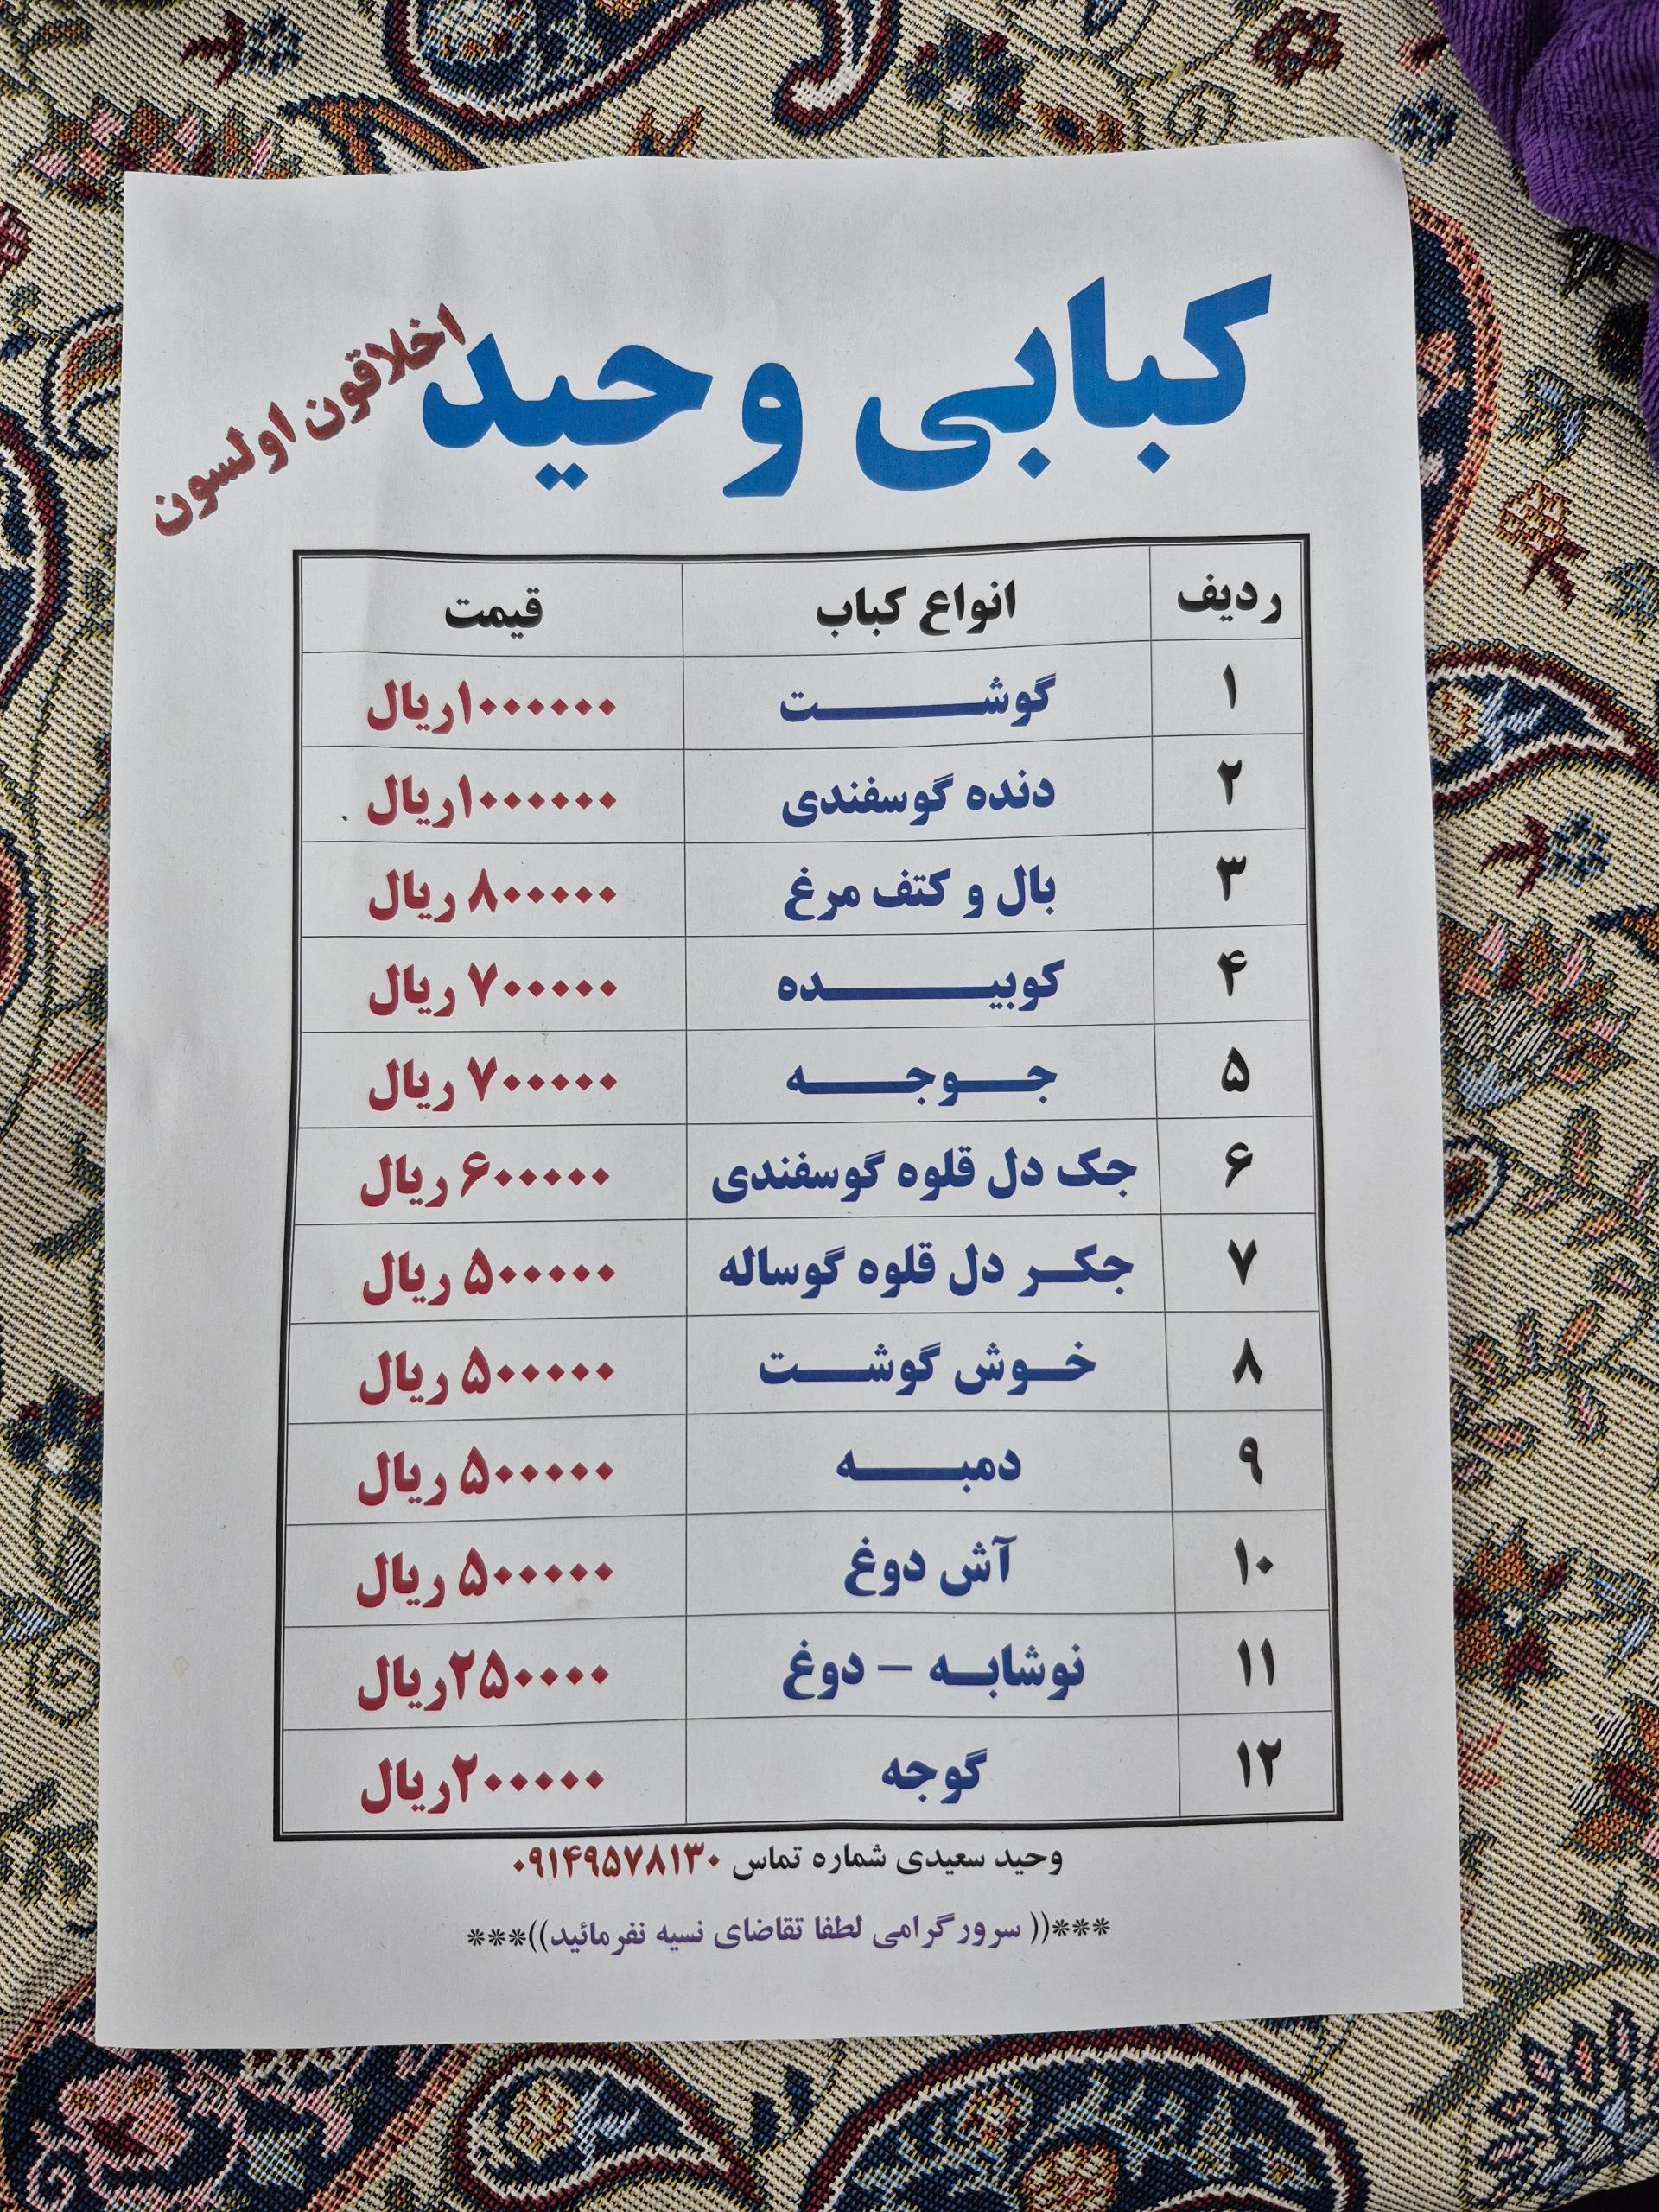 کبابی وحید
اخلاقون اولسون
ردیف انواع کباب قیمت
۱ گوشت ۱۰۰۰۰۰۰ریال
۲ دنده گوسفندی ۱۰۰۰۰۰۰ریال
۳ بال و کتف مرغ ۸۰۰۰۰۰ ریال
۴ کوبیده ۷۰۰۰۰۰ ریال
۵ جوجه ۷۰۰۰۰۰ ریال
۶ جک دل قلوه گوسفندی ۶۰۰۰۰۰ ریال
۷ جکر دل قلوه گوساله ۵۰۰۰۰۰ ریال
۸ خوش گوشت ۵۰۰۰۰۰ ریال
۹ دمبه ۵۰۰۰۰۰ ریال
۱۰ آش دوغ ۵۰۰۰۰۰ ریال
۱۱ نوشابه – دوغ ۲۵۰۰۰۰ریال
۱۲ گوجه ۲۰۰۰۰۰ریال
وحید سعیدی شماره تماس ۰۹۱۴۹۵۷۸۱۳۰
***(( سرورگرامی لطفا تقاضای نسیه نفرمائید))***